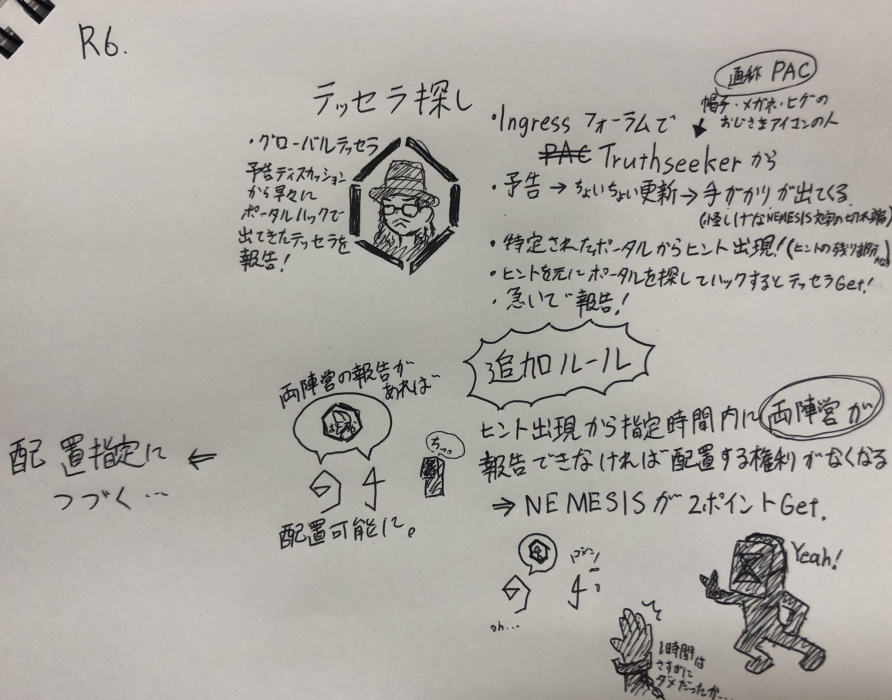 R6.
テッセラ探し
・グローバルテッセラ
予告ディスカッション
から早々に
ポータルハックで
出てきたテッセラを
報告!
通称 PAC
帽子・メガネ・ヒゲの
おじさまアイコンの人
・Ingress フォーラムで
PAC Truthseekerから
・予告→ちょいちょい更新→手がかりが出てくる
(怪しげなNEMESIS文字の切れ端)
・特定されたポータルからヒント出現!(ヒントの残り部分
・ヒントを元にポータルを探してハックするとテッセラGet!
・急いで報告!
追加ルール
両陣営の報告が
あれば
ちっ。
配置可能に。
配置指定に
つづく…
ヒント出現から指定時間内に両陣営が
報告できなければ配置する権利がなくなる
⇒ NEMESISが2ポイントGet.
oh...
Yeah!
1時間は
さすがに
ダメだったか…